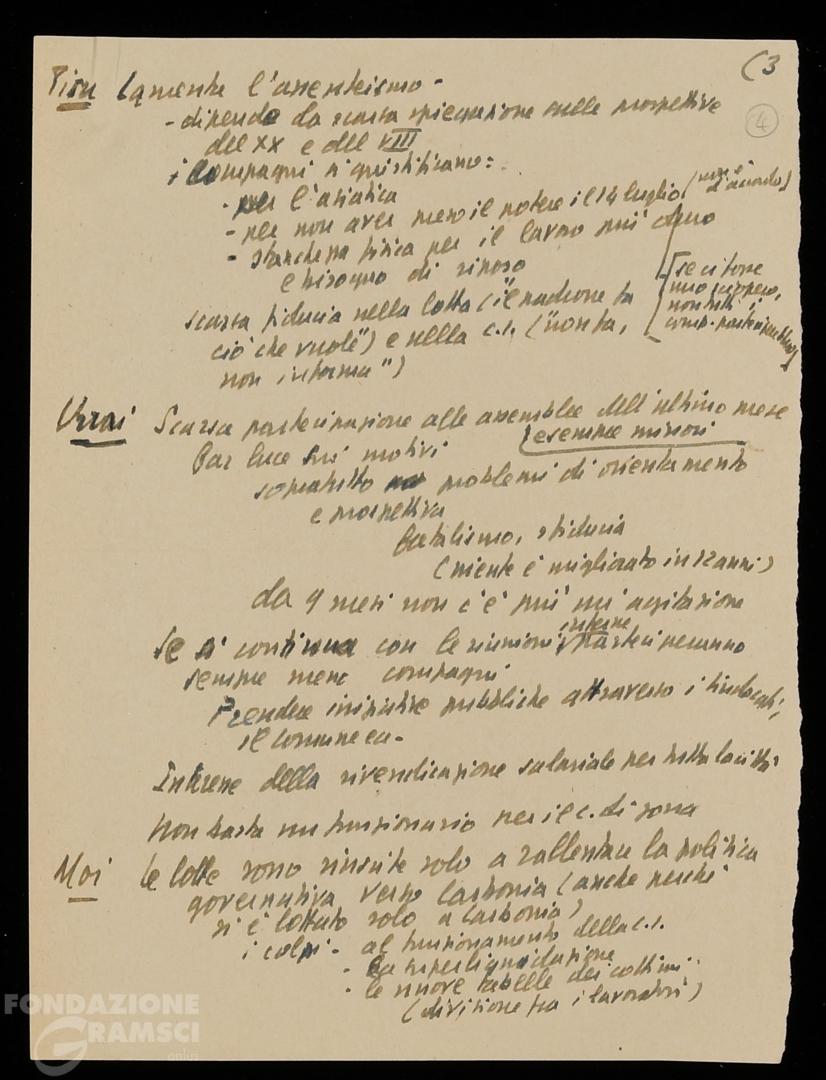 (3
(4)
Pisu lamenta l'assenteismo -
- dipende da scarsa spiegazione sulle prospettive
del XX e dell'VIII
i compagni si giustificano:
- per l'asiatica
- per non aver preso il potere il 14 luglio (non è d'accordo)
- stanchezza fisica per il lavoro più duro
e bisogno di riposo
[se ci fosse
uno sciopero,
tutti i
comp. parteciperebbero]
scarsa fiducia nella lotta ("il padrone fa
ciò che vuole") e nella c.i. ("non fa,
non informa")
Scarsa partecipazione alle assemblee dell'ultimo mese
e sempre minori
Far luce sui motivi
sopratutto problemi di orientamento
e prospettiva
fatalismo, sfiducia
(niente è migliorato in 12 anni)
da 9 mesi non c'è più un'agitazione
Se si continua con le riunioni interne parteciperanno
sempre meno compagni
Prendere iniziative pubbliche attraverso i sindacati,
il comune ecc.
Interesse della rivendicazione salariale per tutta la città
Non basta un funzionario per il c. di zona
Moi le lotte sono riuscite solo a rallentare la politica
governativa verso Carbonia (anche perché
si è lottato solo a Carbonia)
i colpi - al funzionamento della c.i.
- la superliquidazione
- le nuove tabelle dei cottimi
(divisione tra i lavoratori)
FONDAZIONE
GRAMSCI
onlus